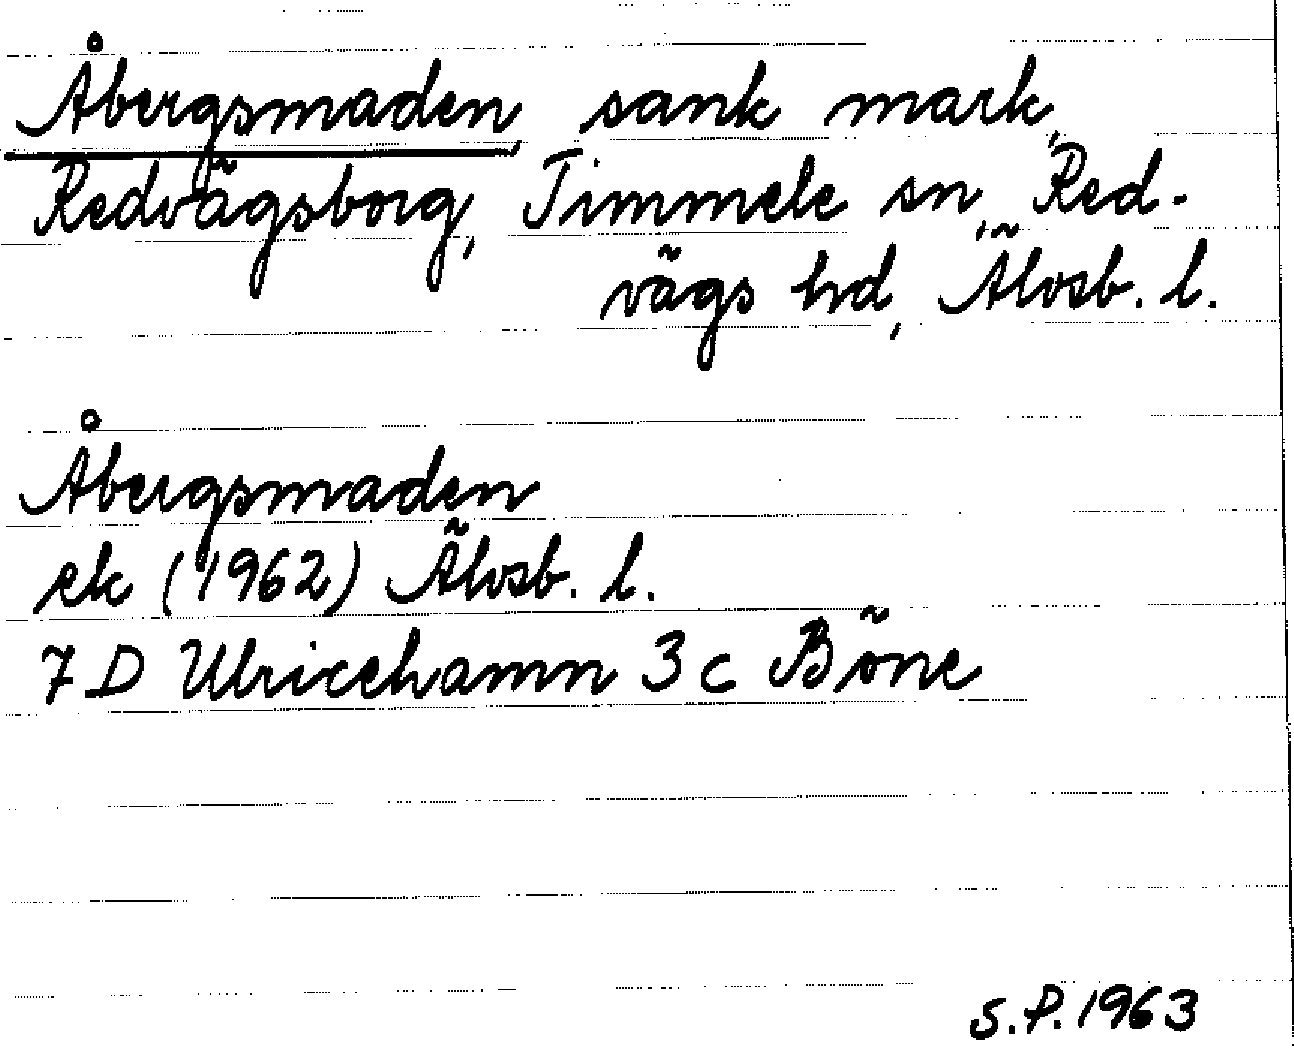 Åbergsmaden, sank mark,
Redvägsborg, Timmele sn, Red-
vägs hd, Älvsb. l.
Åbergsmaden
ek (1962) Älvsb. l.
7 D Ulricehamn 3 c Böne
S.P. 1963